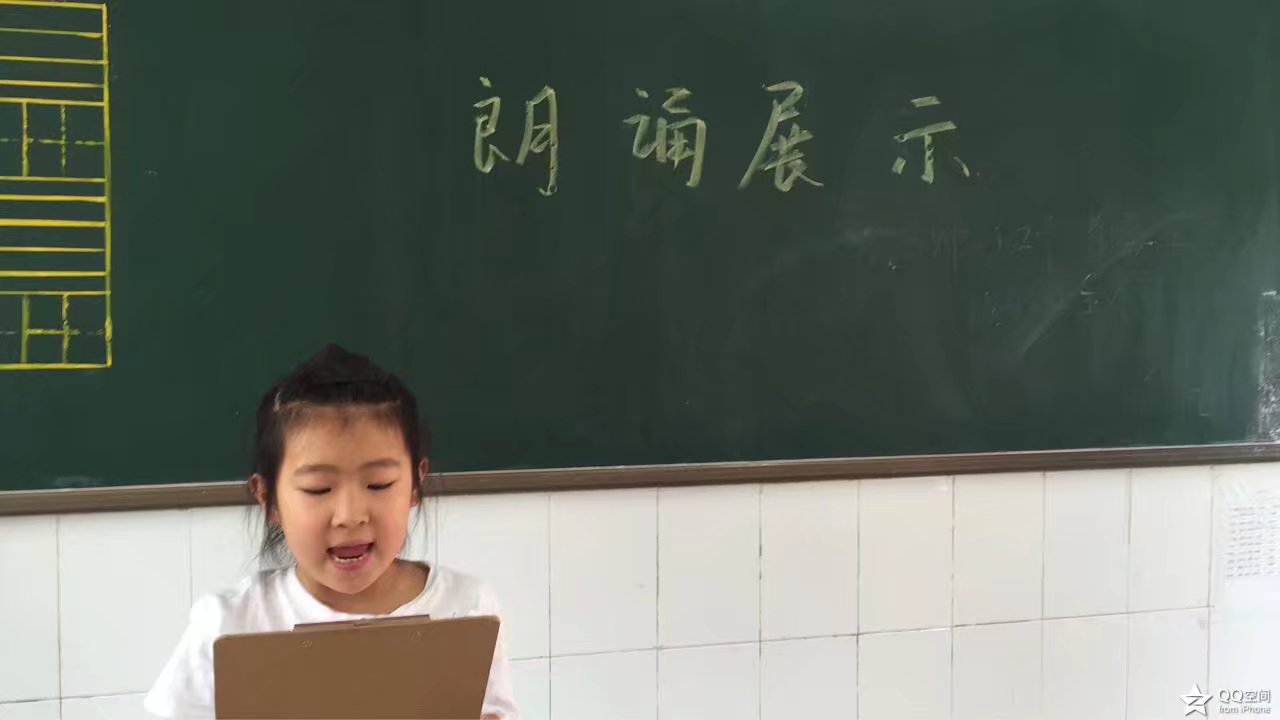 朗诵展示
QQ空间
from iPhone